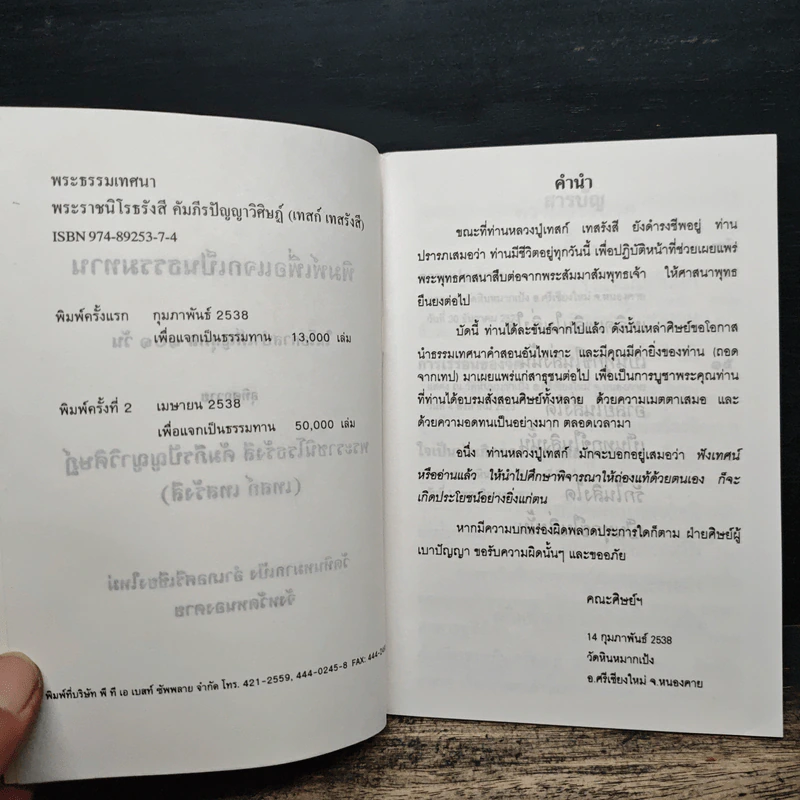 พระธรรมเทศนา
พระราชนิโรธรังสี คัมภีรปัญญาวิศิษฏ์ (เทสก์ เทสรังสี)
ISBN 974-89253-7-4
พิมพ์ครั้งแรก กุมภาพันธ์ 2538
เพื่อแจกเป็นธรรมทาน 13,000 เล่ม
พิมพ์ครั้งที่ 2 เมษายน 2538
เพื่อแจกเป็นธรรมทาน 50,000 เล่ม
พิมพ์ที่บริษัท พี ที เอ เบสท์ ซัพพลาย จำกัด โทร. 421-2559, 444-0245-8 FAX: 444-
คำนำ
ขณะที่ท่านหลวงปู่เทสก์ เทสรังสี ยังดำรงชีพอยู่ ท่าน
ปรารภเสมอว่า ท่านมีชีวิตอยู่ทุกวันนี้ เพื่อปฏิบัติหน้าที่ช่วยเผยแพร่
พระพุทธศาสนาสืบต่อจากพระสัมมาสัมพุทธเจ้า ให้ศาสนาพุทธ
ยืนยงต่อไป
บัดนี้ ท่านได้ละขันธ์จากไปแล้ว ดังนั้นเหล่าศิษย์ขอโอกาส
นำธรรมเทศนาคำสอนอันไพเราะ และมีคุณมีค่ายิ่งของท่าน (ถอด
จากเทป) มาเผยแพร่แก่สาธุชนต่อไป เพื่อเป็นการบูชาพระคุณท่าน
ที่ท่านได้อบรมสั่งสอนศิษย์ทั้งหลาย ด้วยความเมตตาเสมอ และ
ด้วยความอดทนเป็นอย่างมาก ตลอดเวลามา
อนึ่ง ท่านหลวงปู่เทสก์ มักจะบอกอยู่เสมอว่า ฟังเทศน์
หรืออ่านแล้ว ให้นำไปศึกษาพิจารณาให้ถ่องแท้ด้วยตนเอง ก็จะ
เกิดประโยชน์อย่างยิ่งแก่ตน
หากมีความบกพร่องผิดพลาดประการใดก็ตาม ฝ่ายศิษย์ผู้
เบาปัญญา ขอรับความผิดนั้นๆ และขออภัย
คณะศิษย์ฯ
14 กุมภาพันธ์ 2538
วัดหินหมากเป้ง
อ.ศรีเชียงใหม่ จ.หนองคาย